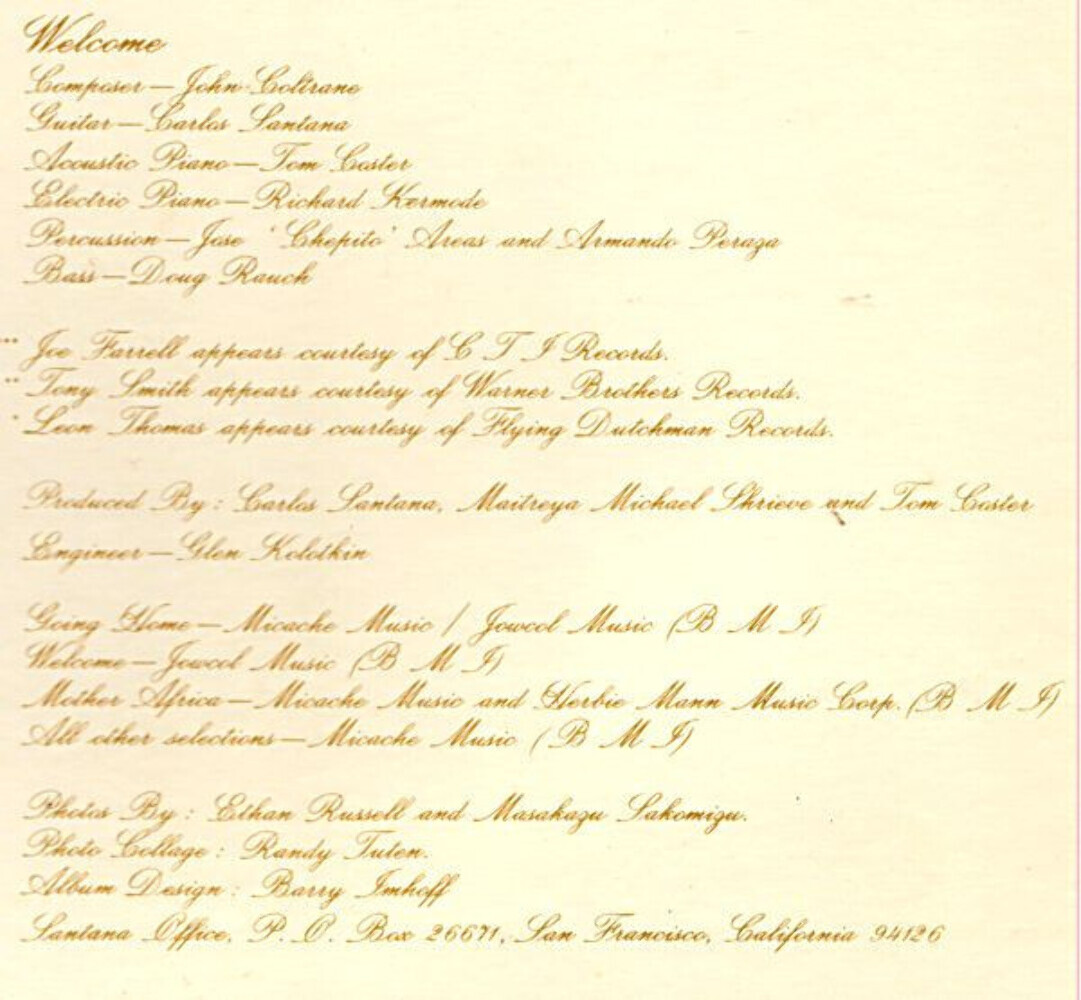 Welcome
Composer — John Coltrane
Guitar — Carlos Santana
Acoustic Piano — Tom Coster
Electric Piano — Richard Kermode
Percussion — Jose 'Chepito' Areas and Armando Peraza
Bass — Doug Rauch
... Joe Farrell appears courtesy of C T I Records.
.. Tony Smith appears courtesy of Warner Brothers Records.
. Leon Thomas appears courtesy of Flying Dutchman Records.
Produced By : Carlos Santana, Maitreya Michael Shrieve and Tom Coster
Engineer — Glen Kolotkin
Going Home — Micache Music / Jowcol Music (B M I)
Welcome — Jowcol Music (B M I)
Mother Africa — Micache Music and Herbie Mann Music Corp. (B M I)
All other selections — Micache Music (B M I)
Photos By : Ethan Russell and Masakazu Sakomizu.
Photo Collage : Randy Tuten.
Album Design : Barry Imhoff
Santana Office, P. O. Box 26671, San Francisco, California 94126